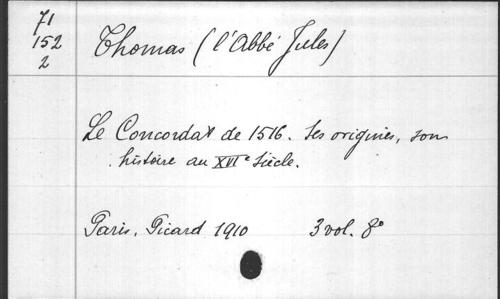 71
152
2
Thomas (l'Abbé Jules)
Le Concordat de 1516. Ses origines, son
histoire au XVIe Siècle.
Paris, Picard 1910 3 vol. 8°